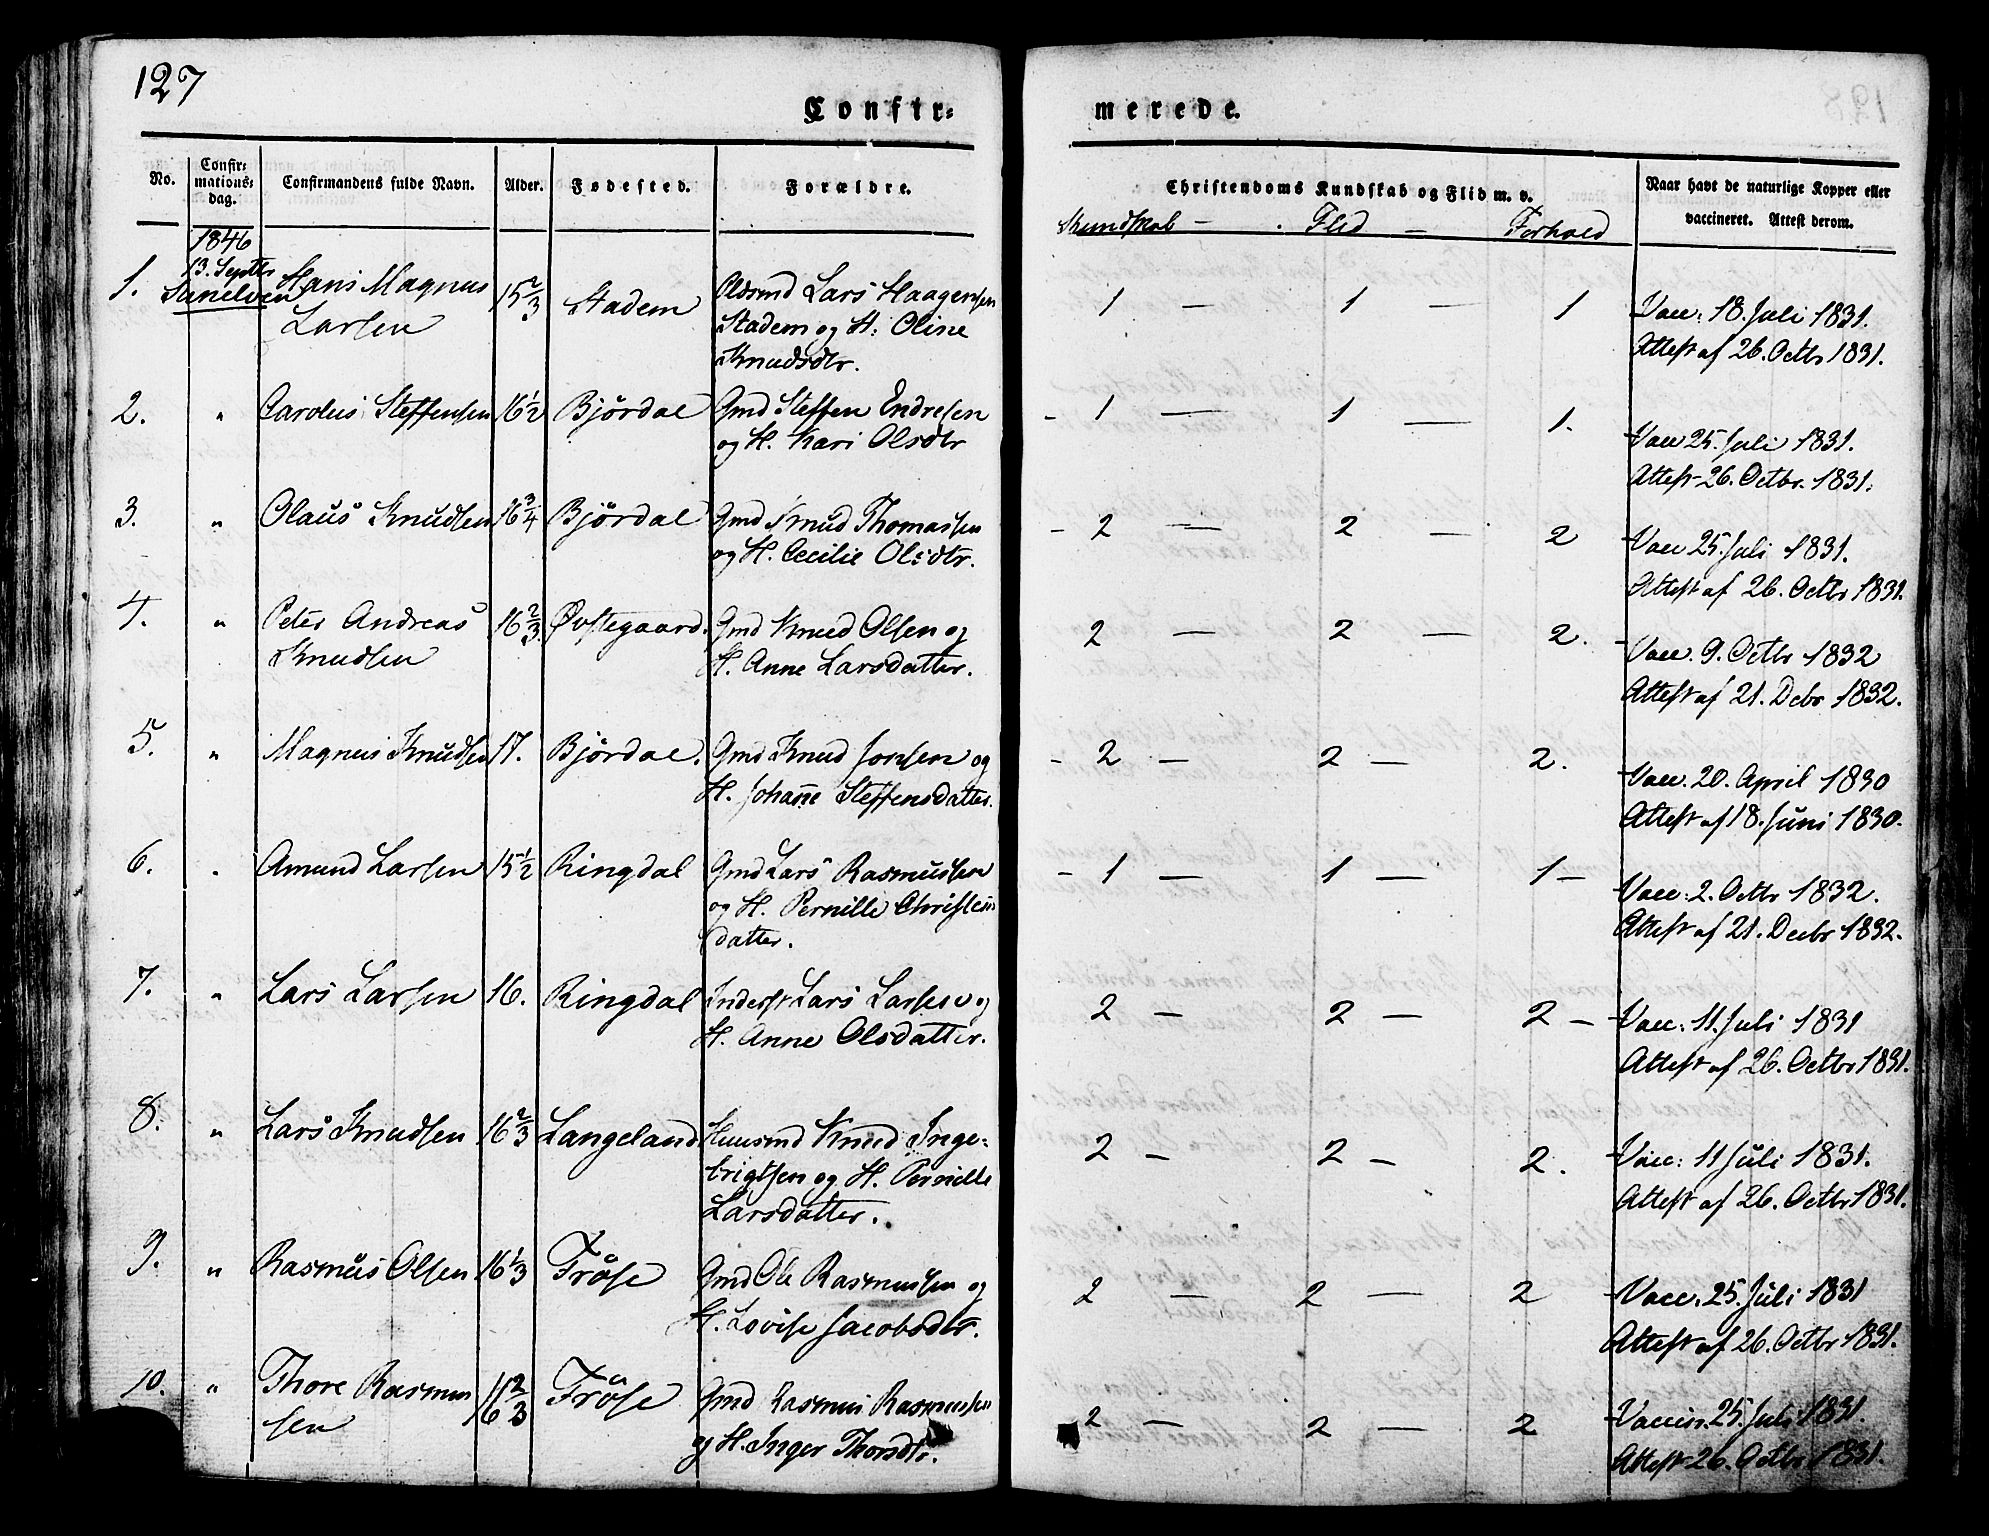 127
Confir=
merede.
No.
Confir=
mations=
dag.
Confirmandens fulde Navn.
Alder.
Fødested.
Forældre.
Christendoms Kundskab og Flid m. v.
Kundskab — . Flid — Forhold
Naar havt de naturlige Kopper eller
vaccineret. Attest derom.
1846
13. Septbr
Sunelven
1. Hans Magnus 15 2/3 Stadem
Larsen
Lars Haagensen
Stadem og H: Oline
Knudsdtr.
1 — 1 — 1
Vacc: 18. Juli 1831.
Attest af 26. Octbr 1831.
2. " Carolus Steffensen 16 1/2 Björdal Gmd Steffen Endresen
og H. Kari Olsdtr
- 1 — 1 — 1.
Vacc 25. Juli 1831.
Attest 26. Octbr. 1831.
3. " Olaus Knudsen 16 3/4 Björdal Gmd Knud Thomassen
og H. Cecilie Olsdtr.
- 2 — 2 — 2
Vacc 25. Juli 1831.
Attest af 26. Octbr 1831.
4. " Peter Andreas 16 2/3 Øvstegaard. Gmd Knud Olsen og
Knudsen H. Anne Larsdatter.
2 — 2 — 2.
Vacc. 9. Octbr 1832
Attest af 21. Decbr 1832.
5. " Magnus Knudsen 17. Björdal. Gmd Knud Jonsen og
H. Johañe Steffensdatter.
- 2 — 2 — 2.
Vacc. 20. April 1830
Attest af 18. Juni 1830.
6. " Amund Larsen 15 1/2 Ringdal Gmd Lars Rasmussen
og H. Pernille Christens
datter.
- 1 — 1 — 1 —
Vacc. 2. Octbr 1832.
Attest af 21. Decbr 1832.
7. " Lars Larsen 16. Ringdal Inderst Lars Larsen og
H. Anne Olsdatter.
2 — 2 — 2 —
Vacc: 11. Juli 1831
Attest af 26. Octbr 1831.
8. " Lars Knudsen 16 2/3 Langeland Huusmd Knud Inge=
brigtsen og H. Pernille
Larsdatter.
2 — 2 — 2.
Vacc: 11 Juli 1831.
Attest af 26. Octbr 1831.
9. " Rasmus Olsen 16 1/3 Fröse Gmd Ole Rasmussen og
H. Lovise Jacobsdtr.
2 — 2 — 2
Vacc. 25. Juli 1831
Attest af 26. Octbr 1831.
10. " Thore Rasmus 16 2/3 Fröse Gmd Rasmus Rasmussen
sen og H. Inger Thorsdtr.
2 — 2 — 2
Vaccin. 25. Juli 1831.
Attest 26. Octbr 1831.